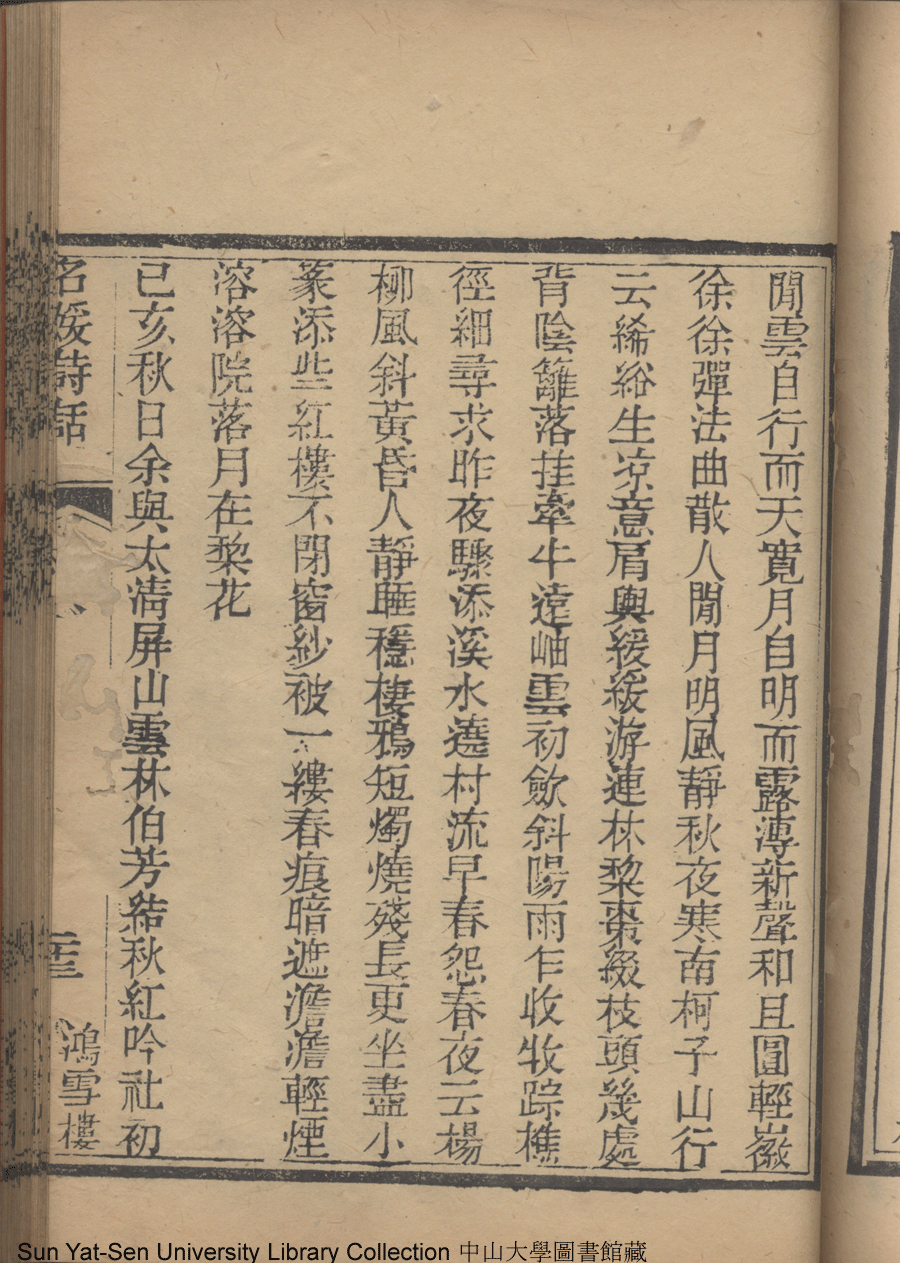 閒雲自行而天寬月自明而露漙新聲和且圓輕徽
徐徐彈法曲散人閒月明風靜秋夜寒南柯子山行
云絺綌生凉意肩輿緩緩游連林棃棗綴枝頭幾處
背陰籬落挂牽牛遠岫雲初歛斜陽雨乍收牧踪樵
徑細尋求昨夜驟添溪水遶村流早春怨春夜云楊
柳風斜黃昏人靜睡穩棲鴉短燭燒殘長更坐盡小
篆添些紅樓不閉窗紗被一縷春痕暗遮澹澹輕煙
溶溶院落月在棃花
已亥秋日余與太清屏山雲林伯芳結秋紅吟社初
名媛詩話
鴻雪樓
Sun Yat-Sen University Library Collection 中山大學圖書館藏